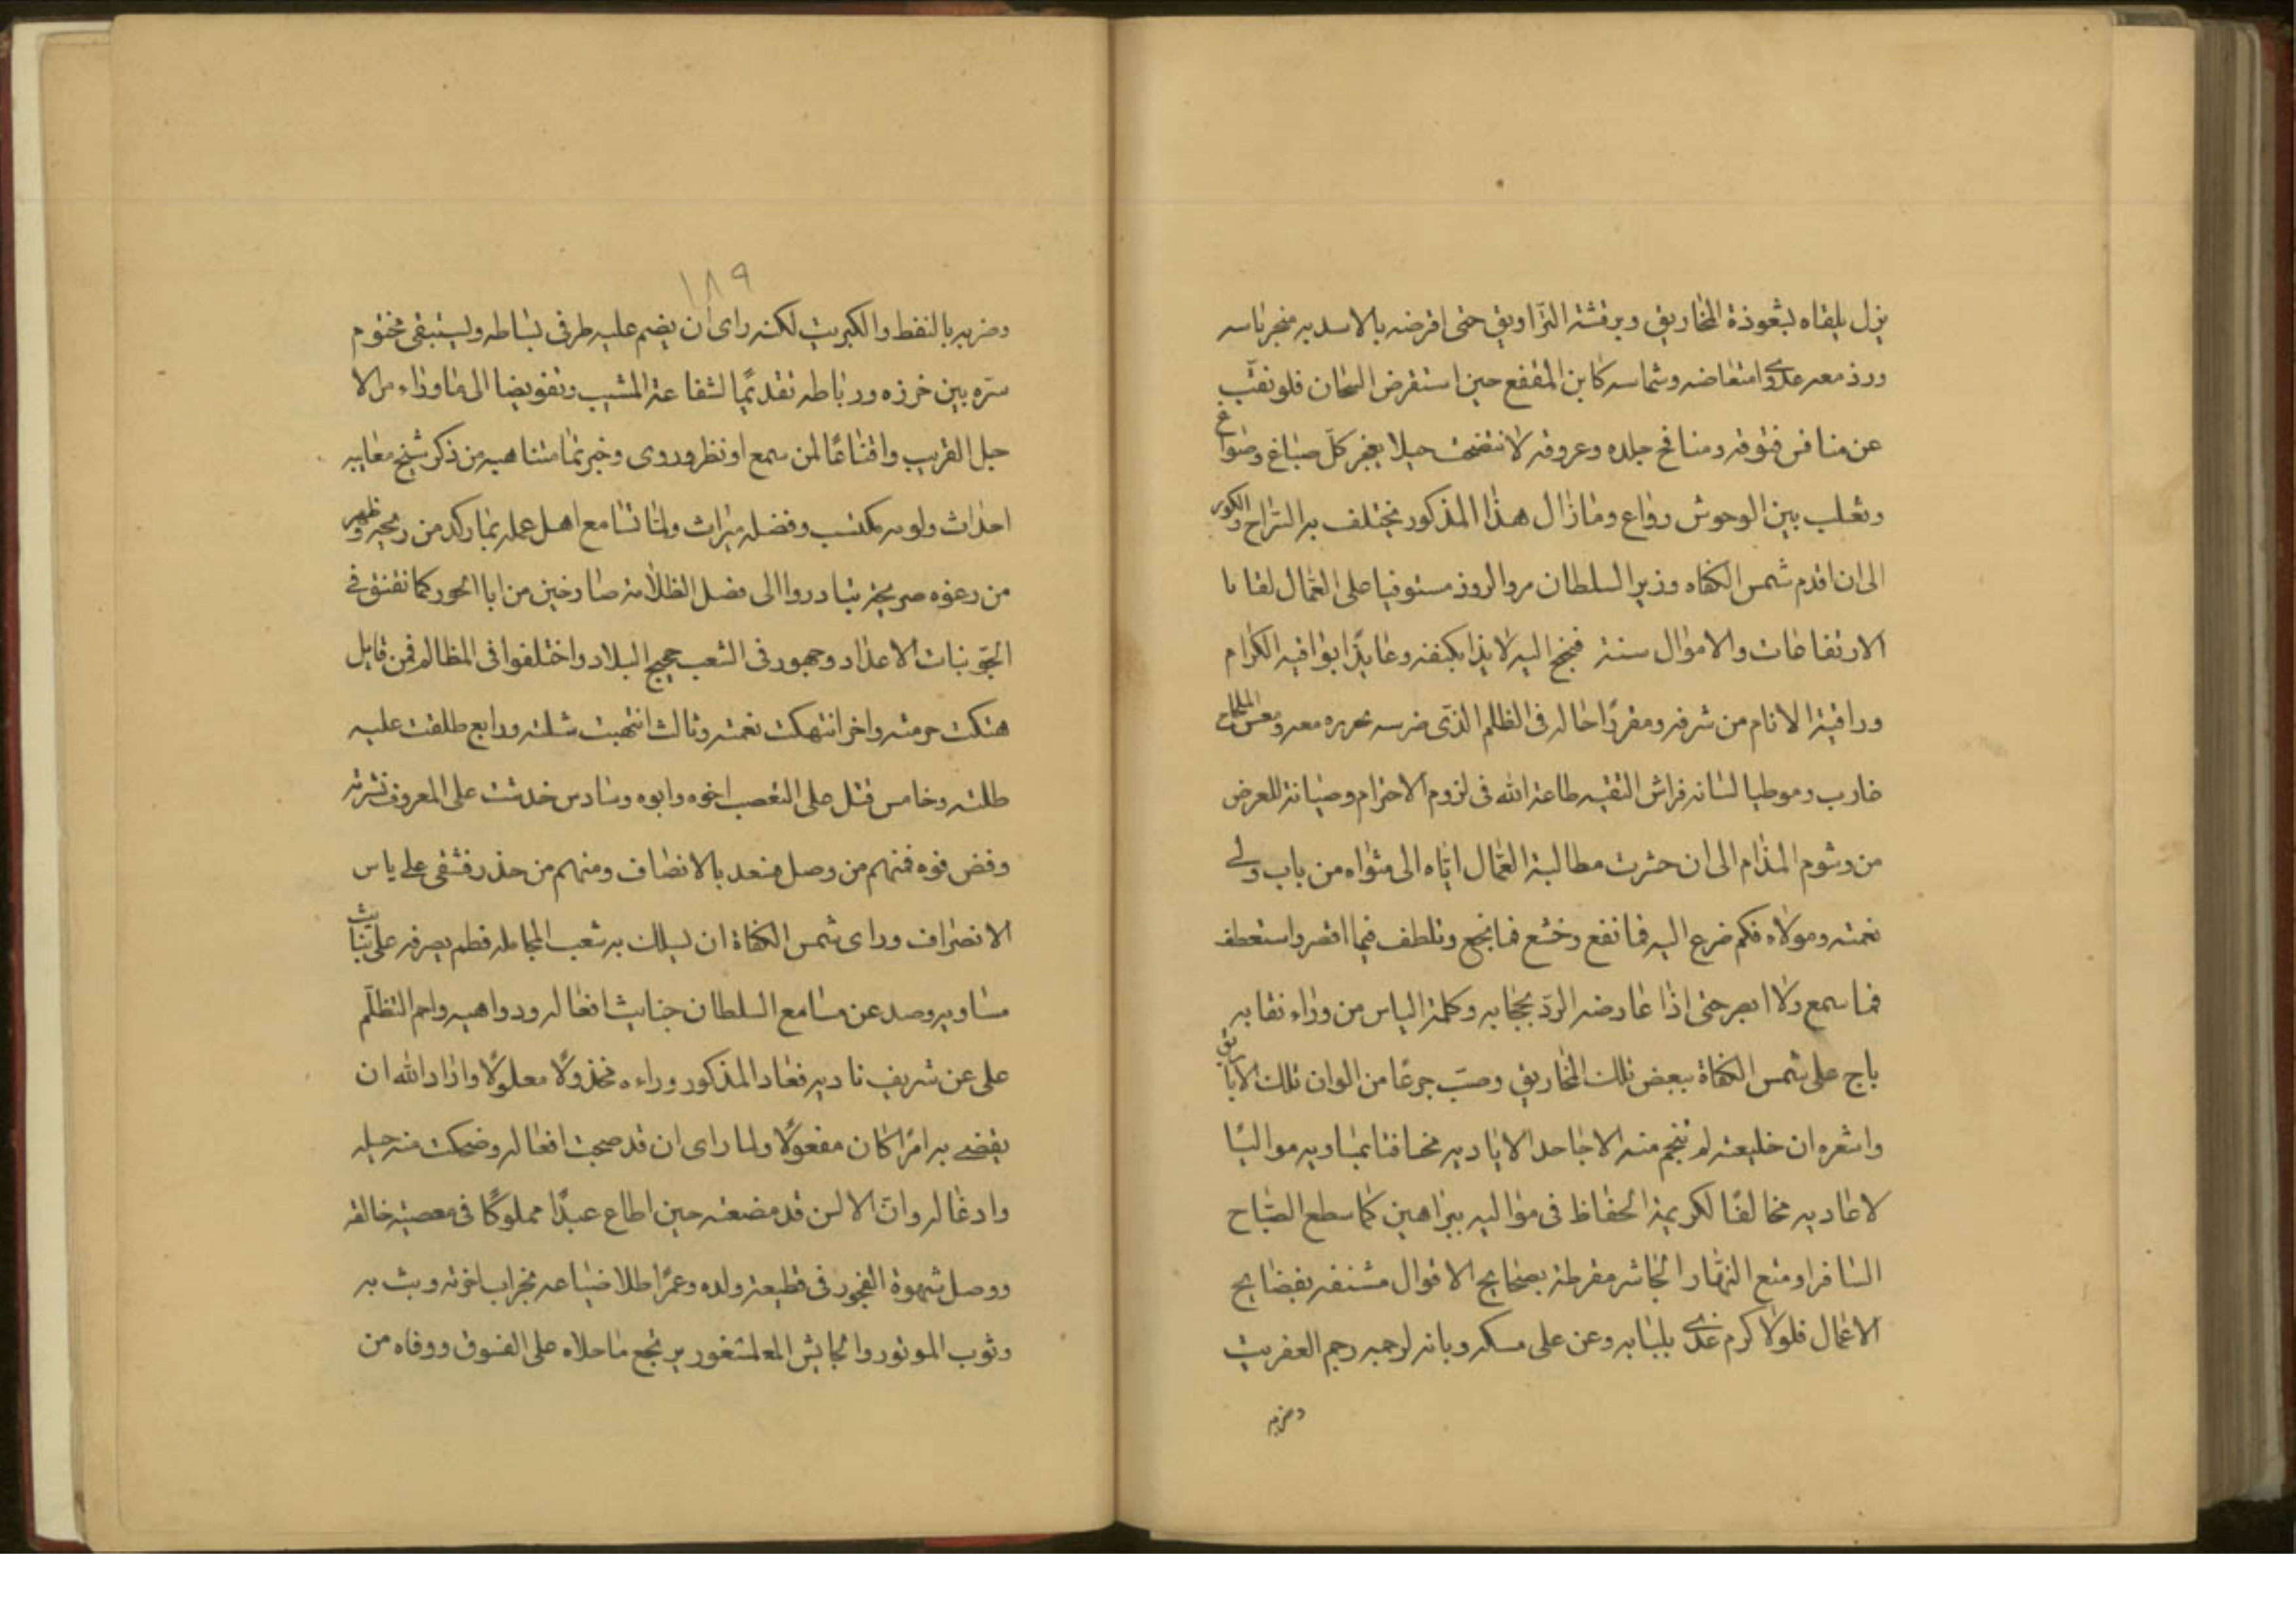 يزل يلقاه بشعوذة المخاريق وبرقشة التزاويق حتى اقرضه بالاسدية منجرناسه
ورد معه على امتعاضه وشماسه كابن المقفع حين استقرض السحان فلو نقّب
عن منافس فتوقه ومنافخ جلده وعروقه لانتضحت حيلا يعجز كلّ صباغ وصواغ
وثعلب بين الوحوش رواغ ومازال هذا المذكور يختلف به التراح والكور
الى ان اقدم شمس الكفاه وزير السلطان مرو الروذ مستوفيا على العمال بقايا
الارتفاعات والاموال سنة فجنح اليه لايذا بكنفه وعايذًا بواقية الكرام
وراقية الانام من شرفه ومقررًا حاله فى الظلم الذى ضرسه تحريره معه
غارب وموطيا لسانه فراش التقيه طاعة الله فى لزوم الاحترام وصيانة للعرض
من وشوم المذام الى ان حشرت مطالبة العمال اياه الى مثواه من باب ولى
نعمته ومولاه فكم ضرع اليه فما نفع وخشع فما نجع وتلطف فيما اقصر واستعطف
فما سمع ولا ابصر حتى اذا عارضه الردّ بحجابه وكلمة الياس من وراء نقابه
باح على شمس الكفاة ببعض تلك المخاريق وصبّ جرعًا من الوان تلك الاباريق
واشعره ان خليعته لم تنجم منه الا جاحدا لاياديه مخافتا بمباديه مواليًا
لاعاديه مخالفًا لكريمة الحفاظ فى مواليه ببراهين كما سطع الصباح
السافر او متع النهار الجاشر مقرطة بصحايح الاقوال مشنفة بفضايح
الاعمال فلولا كرم غذى بلبابه وعن على مسكه وبابه لرجمه رجم العفريت
وضربه
١٨٩
وضربه بالنفط والكبريت لكنه راى ان يضم عليه طرفى بساطه وليستبقى مختوم
سرّه بين خرزه ورباطه تقديمًا لشفاعة المشيب وتفويضا الى ماوراءه من الا
جل القريب واقناعًا لمن سمع او نظر وروى وخبر بما متناهيه من ذكر شيخ معايبه
احداث ولومه مكتسب وفضله ميراث ولما تسامع اهل عمله بما ركد من ريحه وظهر
من رغوه صريحه تبادروا الى فضل الظلامة صارخين من ابا الحور كما نقنق فى
الجو بنات الاعداد وجهور فى الشعب حجيج البلاد واختلفوا فى المظالم فمن قايل
هتكت حرمته واخر انتهكت نعمته وثالث انتهبت شلته ورابع طلقت عليه
طلته وخامس قتل على التغصب اخوه وابوه وسادس خدشت على المعروف بشرته
وفض فوه فمنهم من وصل فسعد بالانصاف ومنهم من حذر فشقى على ياس
الانصراف وراى شمس الكفاة ان يسلك به شعب المجامله فطم بصرفه على بثبات
مساويه وصد عن مسامع السلطان خبايث افعاله ودواهيه واحم التظلّم
على عن شريف ناديه فعاد المذكور وراءه مخذولًا معلولًا واراد الله ان
يقضى به امرًا كان مفعولًا ولما راى ان قد صحبت افعاله وضحكت منه حيله
وادغاله وان الالسن قد مضغته حين اطاع عبدًا مملوكًا فى معصية خالقه
ووصل شهوة الفجور فى قطيعة ولده وعمّر اطلال ضياعه بخراب اخرته وبث به
وثوب الموتور والجايش المعلمتغور يرتجع ما حلاه على الفسوق ووفاه من